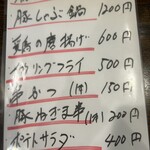 豚しゃぶ鍋 1200円
唐揚げ 600円
イカリングフライ 500円
串かつ (1本) 150円
豚ねぎま串 (1本) 202円
ポテトサラダ 400円